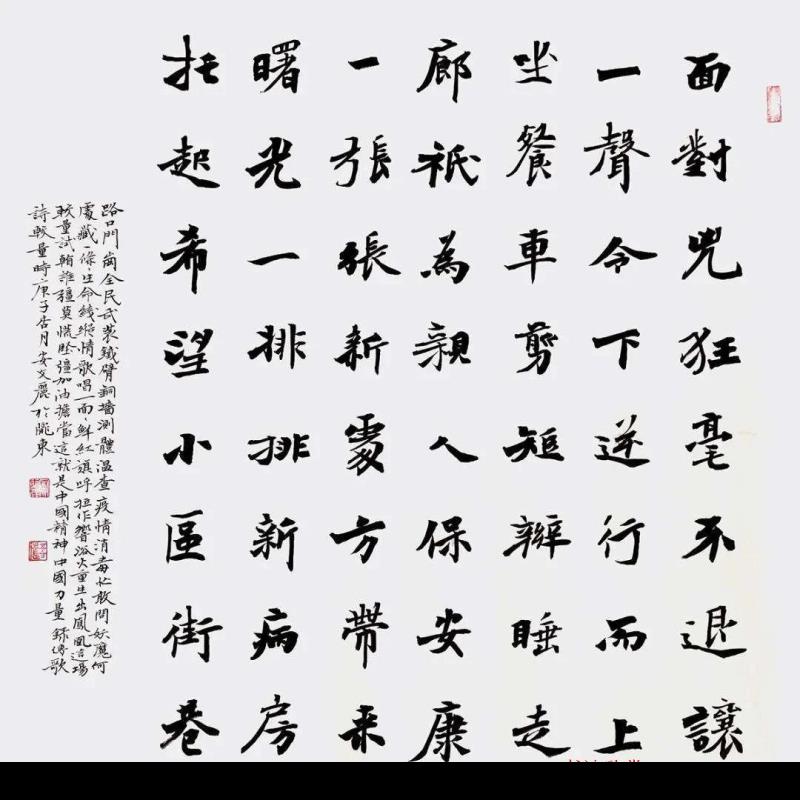 面對兇狂毫不退讓
一聲令下逆行而上
坐餐車剪短辮睡走
廊祇為親人保安康
一張張新處方帶來
曙光一排排新病房
托起希望小區街巷
路口門崗全民武裝鐵臂銅墻測體溫查疫情消毒忙敢問妖魔何
處藏條〻生命綫縱情歌唱一面〻鮮紅旗呼拉作響浴火重生出鳳凰這場
較量試誰彊莫慌彊加油擔當這就是中國精神中國力量錄歌
詩較量時庚子杏月安文麗於隴東